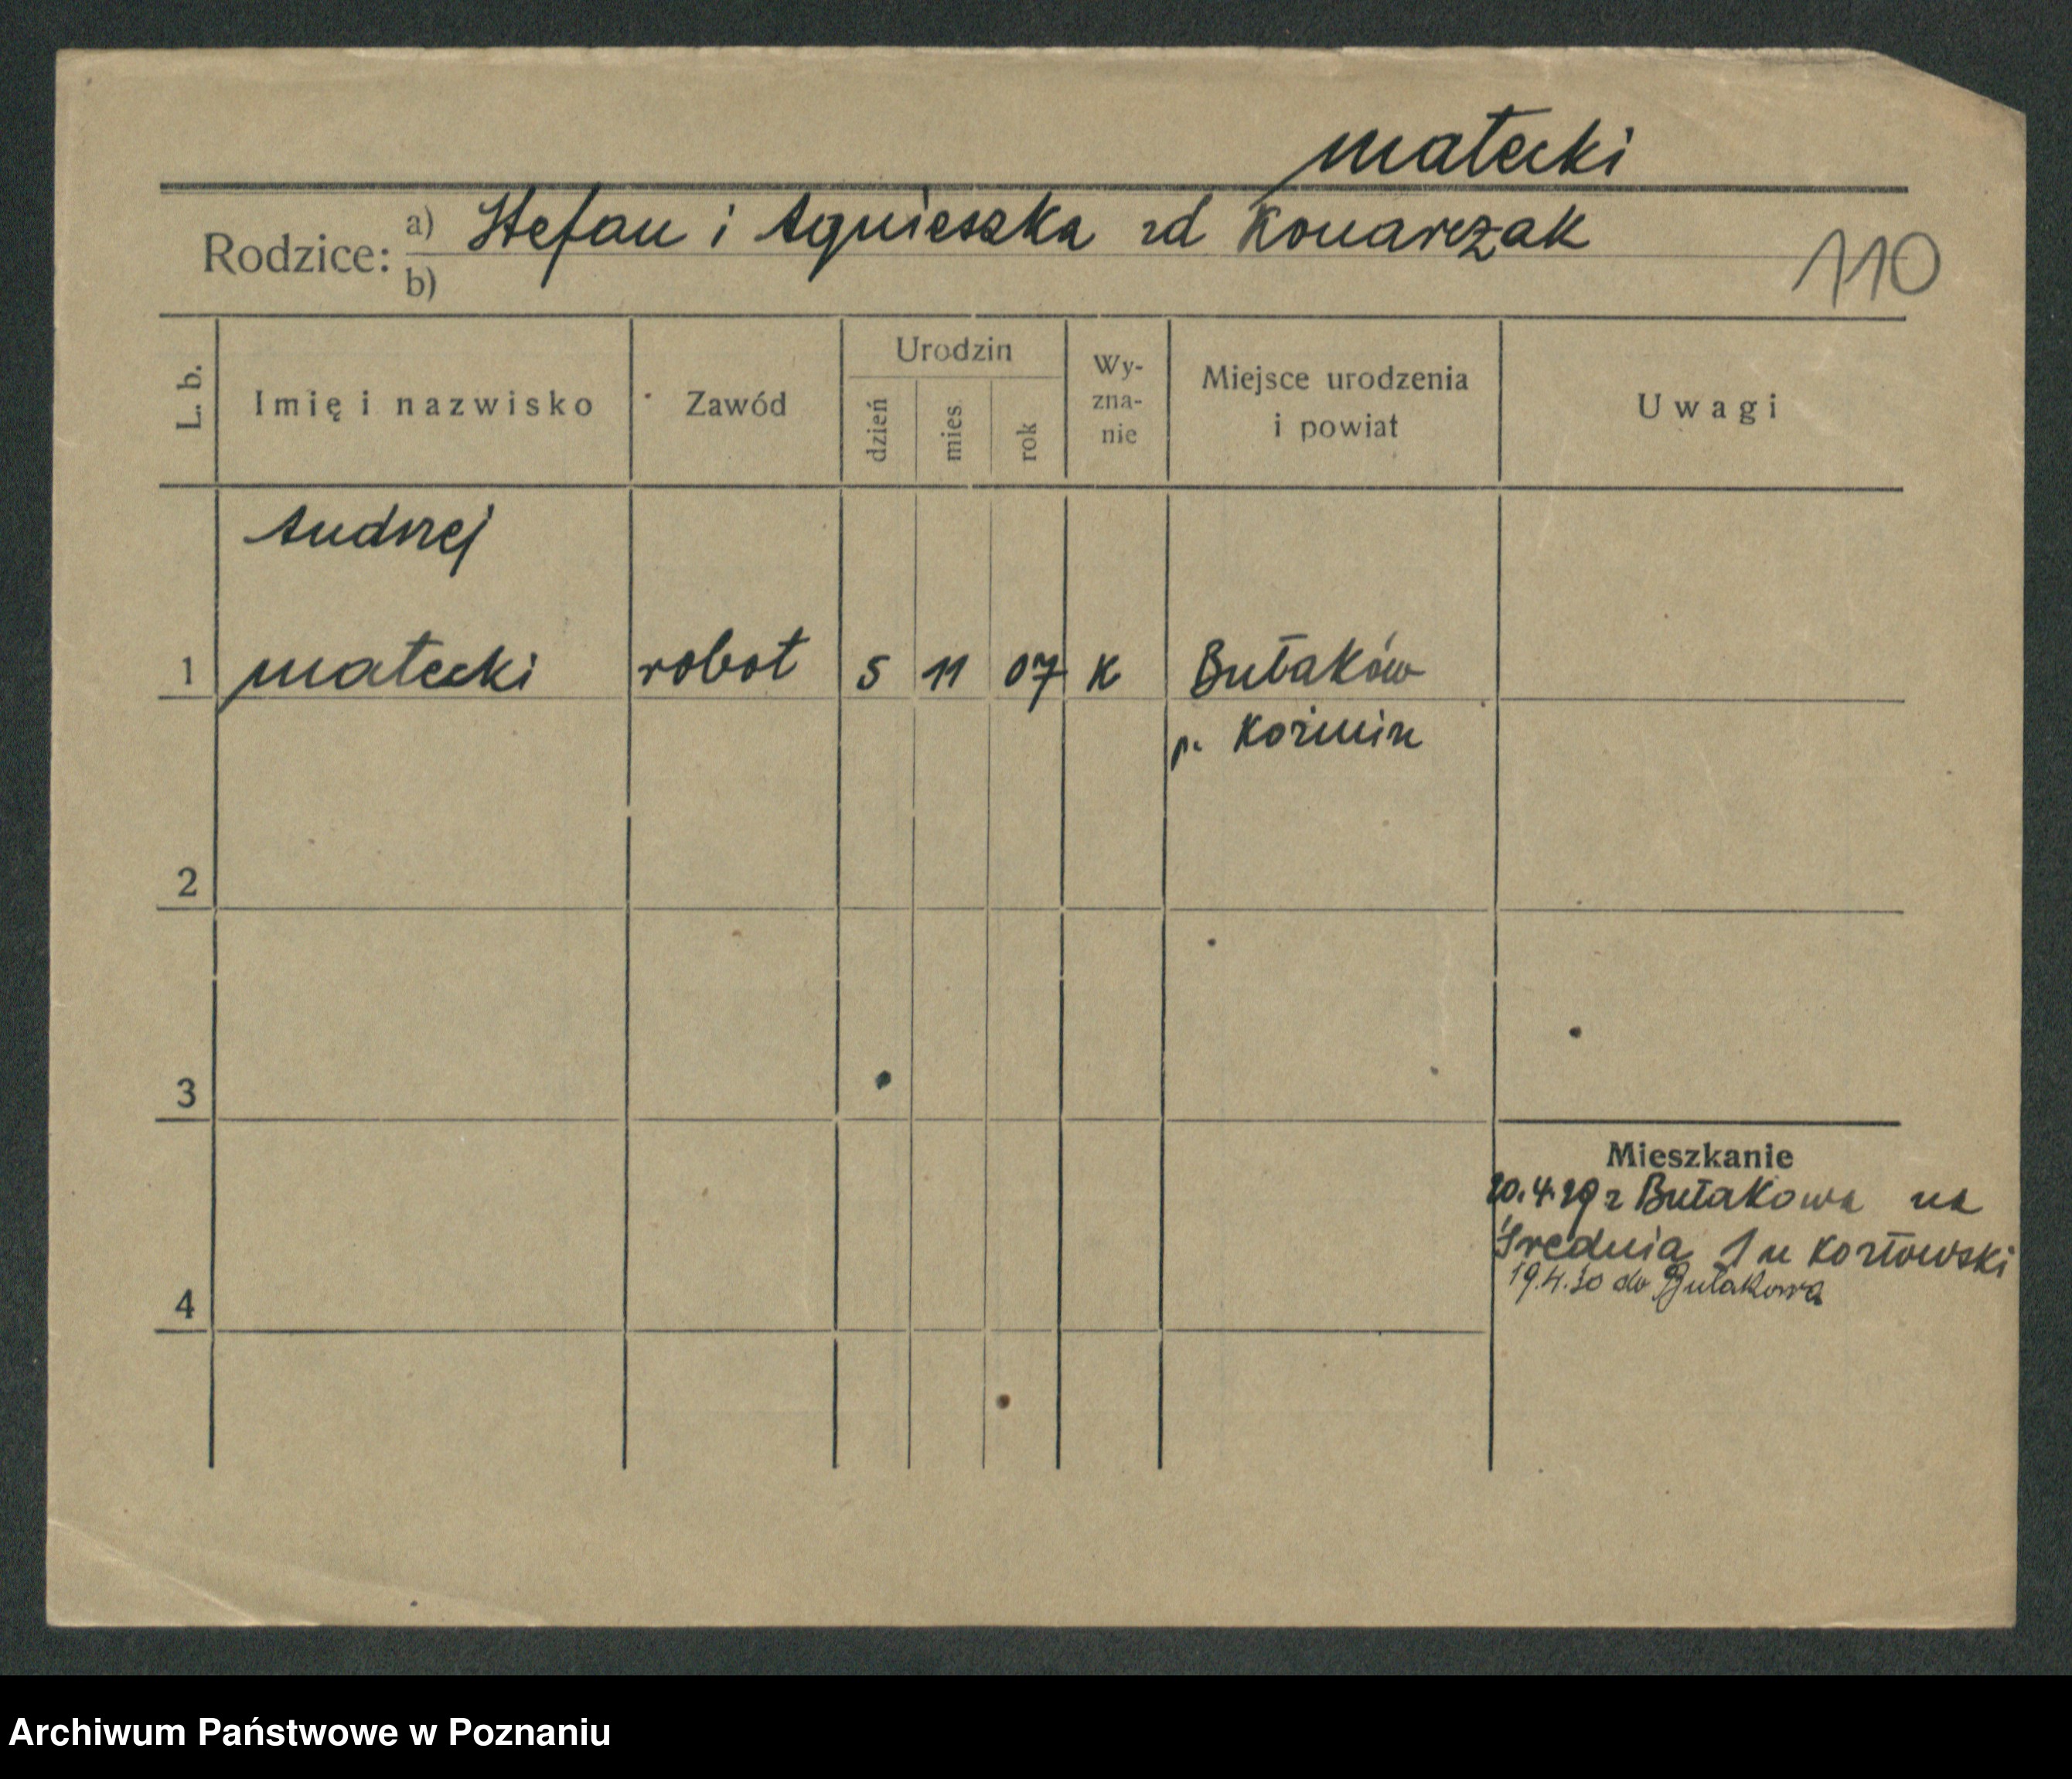 Małecki
Rodzice: a) Stefan i Agnieszka zd Konarczak
b)
110
L. b.
Imię i nazwisko
Zawód
Urodzin
dzień
mies.
rok
Wy-
zna-
nie
Miejsce urodzenia
i powiat
Uwagi
Andrzej
1 Małecki robot 5 11 07 K Bułaków
p. Koźmin
2
3
Mieszkanie
20.4.29 z Bułakowa na
Średnia 1 u Kozłowski
4
19.4.30 do Bułakowa
Archiwum Państwowe w Poznaniu